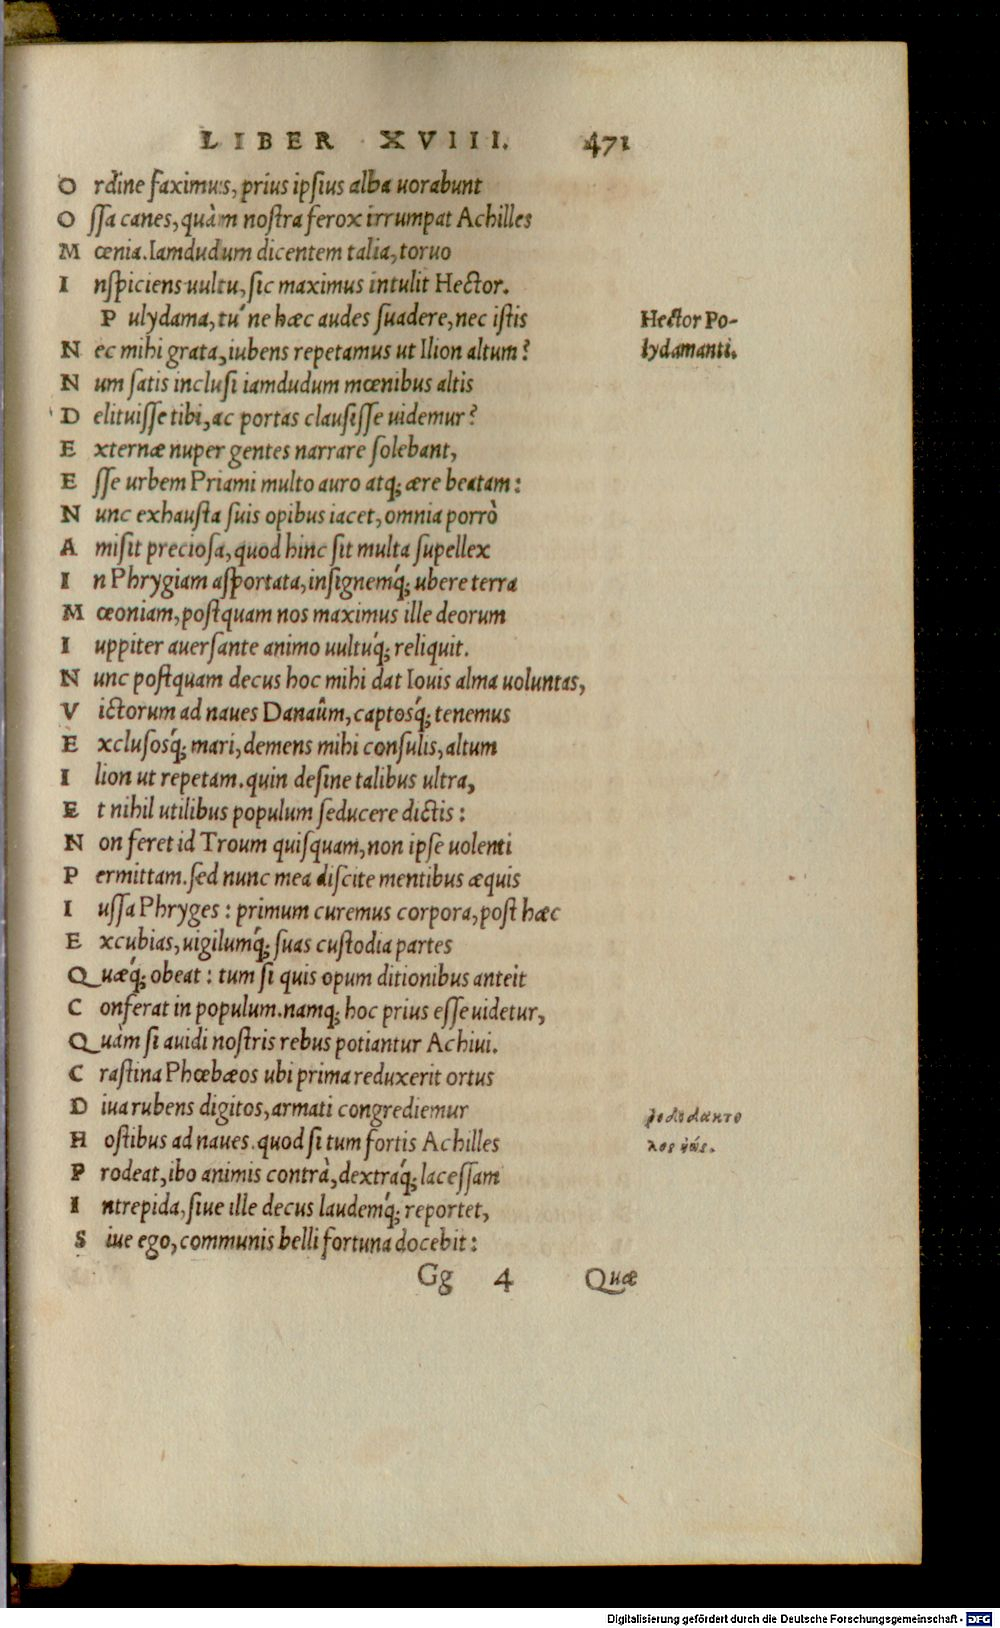 LIBER XVIII. 471
Ordine faximus, prius ipsius alba uorabunt
Ossa canes, quàm nostra ferox irrumpat Achilles
Mœnia. Iamdudum dicentem talia, toruo
Inspiciens uultu, sic maximus intulit Hector.
Pulydama, tu´ ne hæc audes suadere, nec istis
Hector Po-
Nec mihi grata, iubens repetamus ut Ilion altum?
lydamanti.
Num satis inclusi iamdudum mœnibus altis
Delituisse tibi, ac portas clausisse uidemur?
Externæ nuper gentes narrare solebant,
Esse urbem Priami multo auro atq; ære beatam:
Nunc exhausta suis opibus iacet, omnia porrò
Amisit preciosa, quod hinc sit multa supellex
In Phrygiam asportata, insignemq́; ubere terra
Mœoniam, postquam nos maximus ille deorum
Iuppiter auersante animo uultuq́; reliquit.
Nunc postquam decus hoc mihi dat Iouis alma uoluntas,
Victorum ad naues Danaûm, captosq́; tenemus
Exclusosq́; mari, demens mihi consulis, altum
Ilion ut repetam. quin desine talibus ultra,
Et nihil utilibus populum seducere dictis:
Non feret id Troum quisquam, non ipse uolenti
Permittam. sed nunc mea discite mentibus æquis
Iussa Phryges: primum curemus corpora, post hæc
Excubias, uigilumq́; suas custodia partes
Quæq́; obeat: tum si quis opum ditionibus anteit
Conferat in populum. namq; hoc prius esse uidetur,
Quàm si auidi nostris rebus potiantur Achiui.
Crastina Phœbæos ubi prima reduxerit ortus
Diua rubens digitos, armati congrediemur
ῥοδοδάκτυ
Hostibus ad naues. quod si tum fortis Achilles
λος ἠώς.
Prodeat, ibo animis contrà, dextraq́; lacessam
Intrepida, siue ille decus laudemq́; reportet,
Siue ego, communis belli fortuna docebit:
Gg 4 Quæ
Digitalisierung gefördert durch die Deutsche Forschungsgemeinschaft - DFG